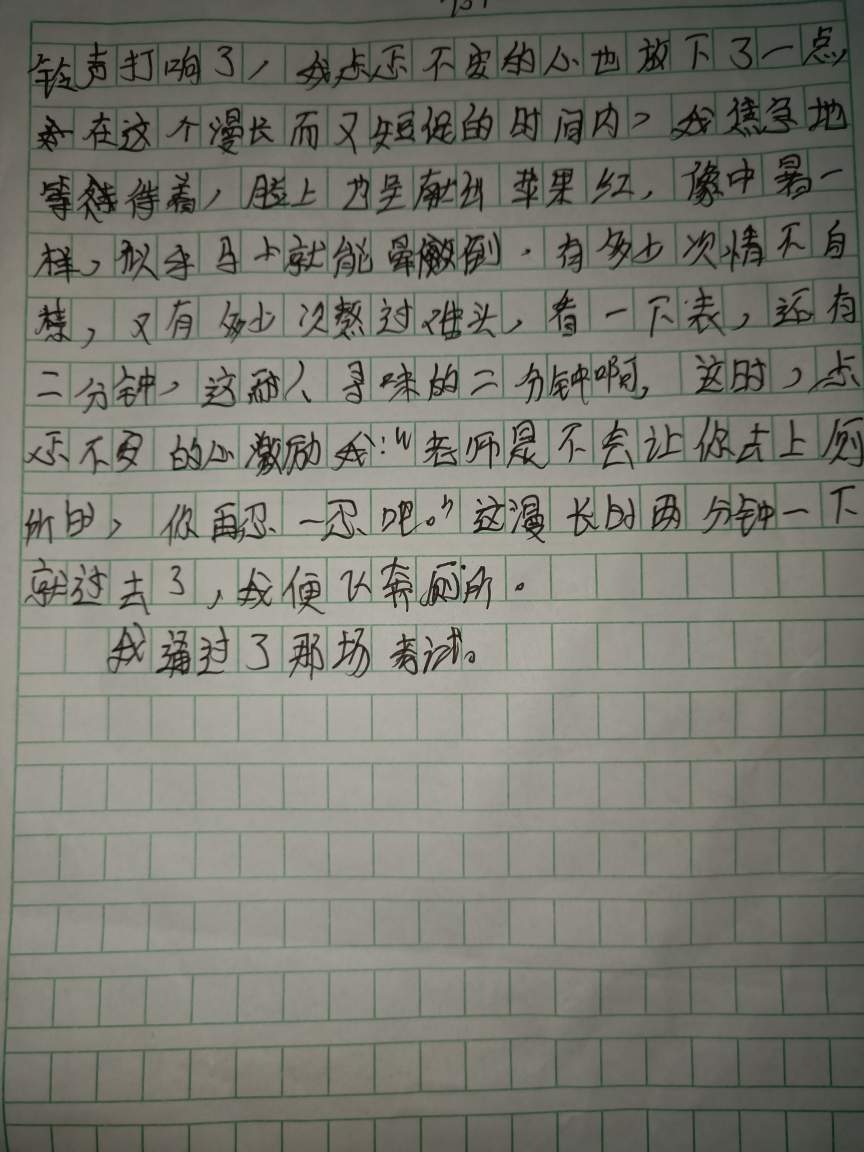 铃声打响了，我忐忑不安的心也放下了一点，
在这个漫长而又短促的时间内，我焦急地
等待着，脸上也呈献出苹果红，像中暑一
样，似乎马上就能晕倒。有多少次情不自
禁，又有多少次熬过难头，看一下表，还有
二分钟，这耐人寻味的二分钟啊，这时，忐
忑不安的心激励我：“老师是不会让你去上厕
所的，你再忍一忍吧。”这漫长的两分钟一下
就过去了，我便飞奔厕所。
我通过了那场考试。